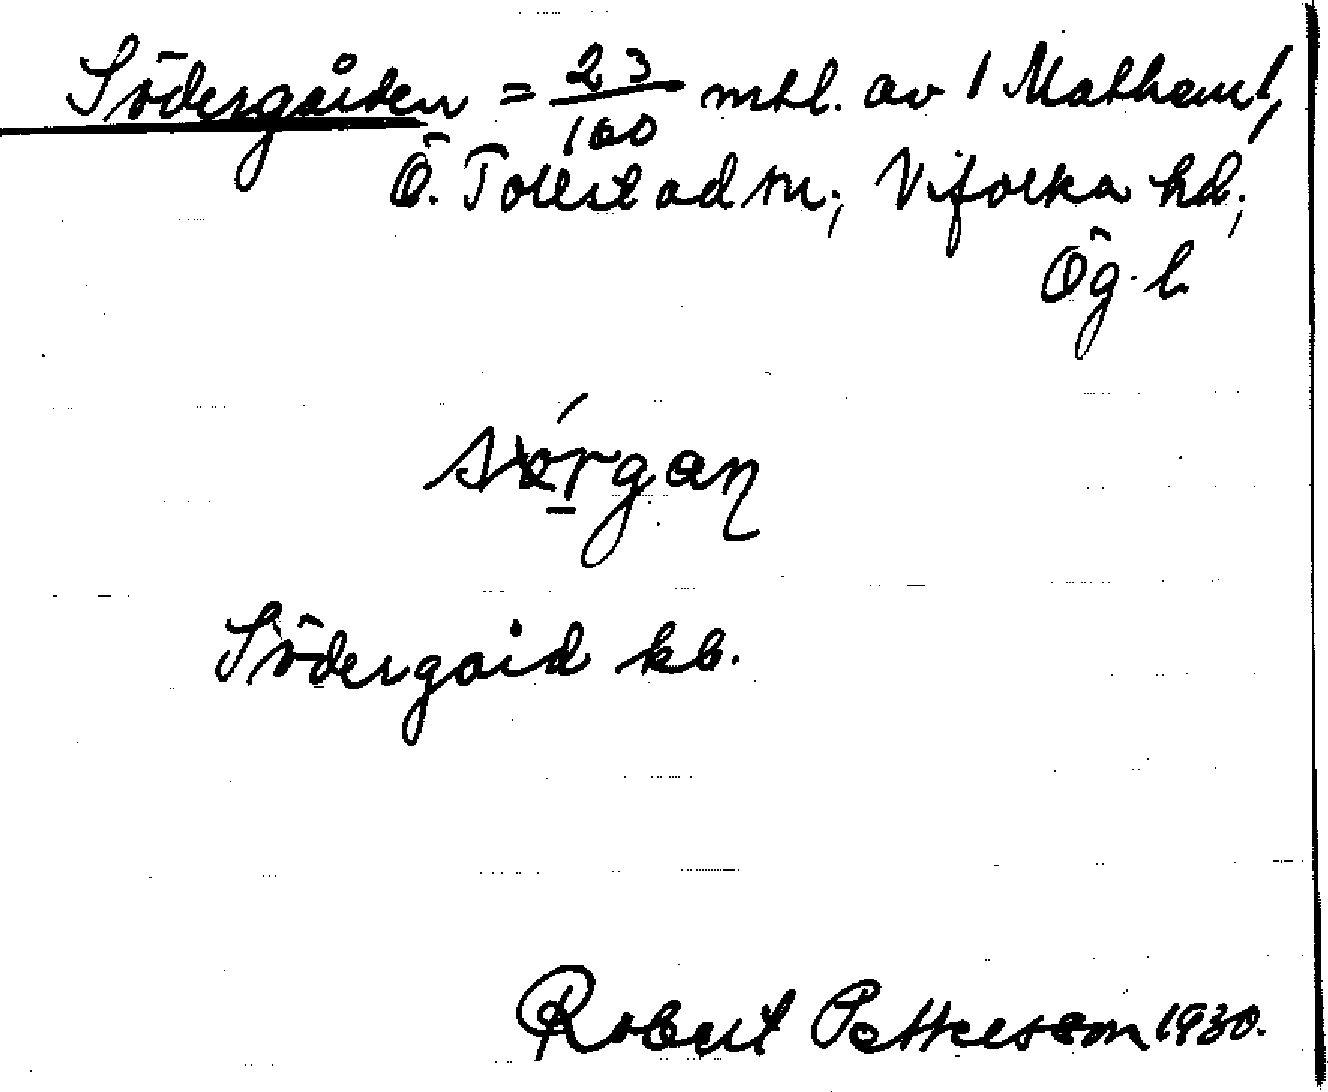 Södergården = 23/100 mtl. av 1 Mathem,
Ö. Tollstad sn., Vifolka hd.,
Ög. l.
Södergård kb.
Robert Petterson 1930.